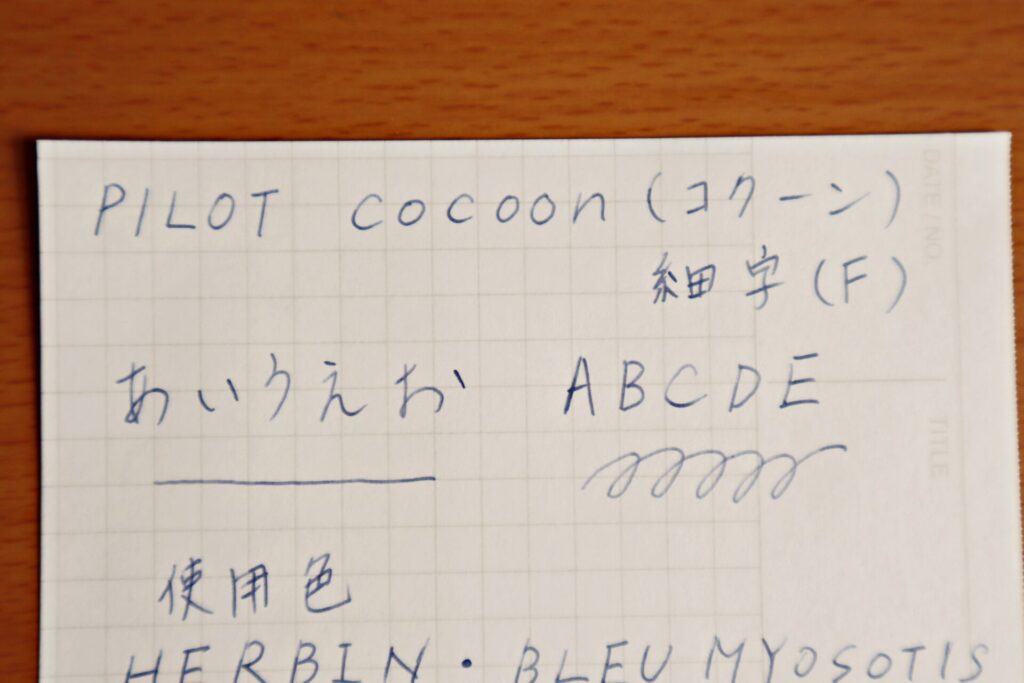 PILOT cocoon (コクーン)
細字 (F)
あいうえお ABCDE
使用色
HERBIN・BLEU MYOSOTIS
DATE / NO.
TITLE